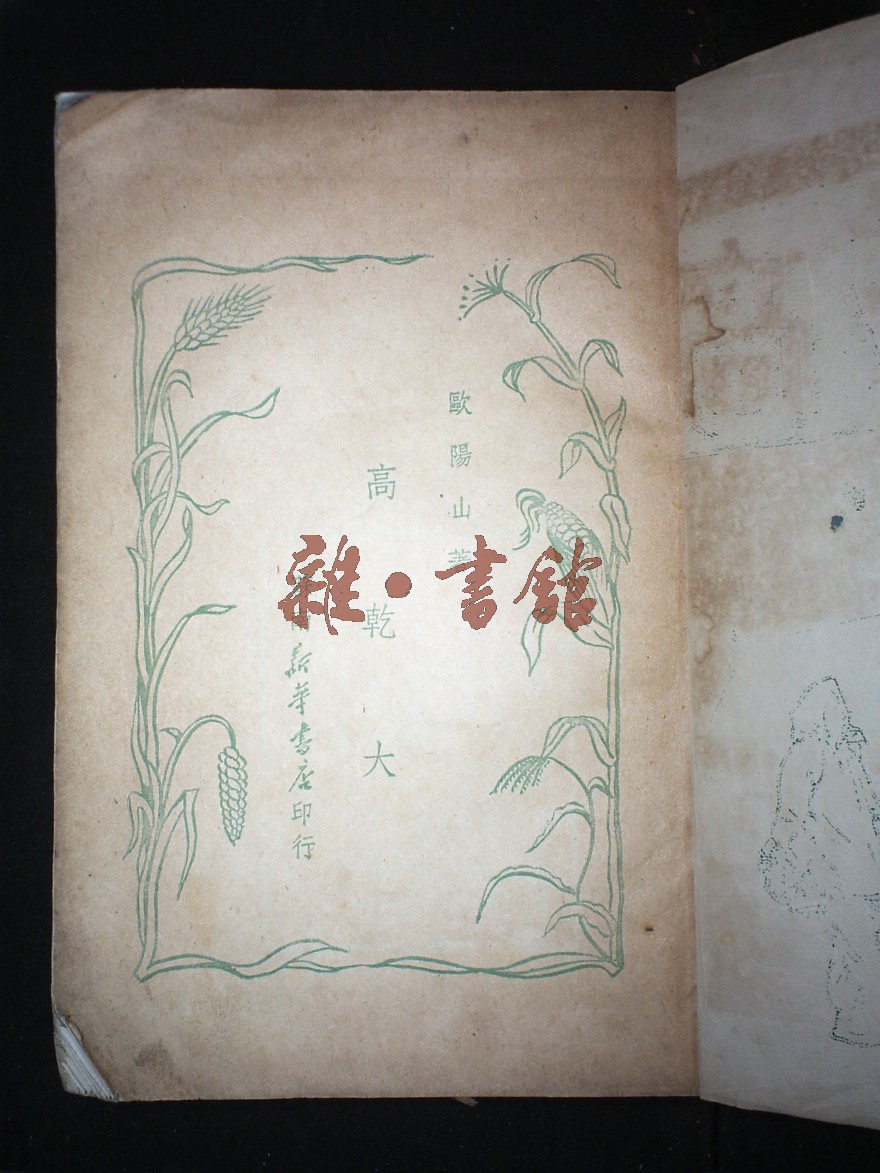 歐陽山著
高乾大
新華書店印行
雜·書館